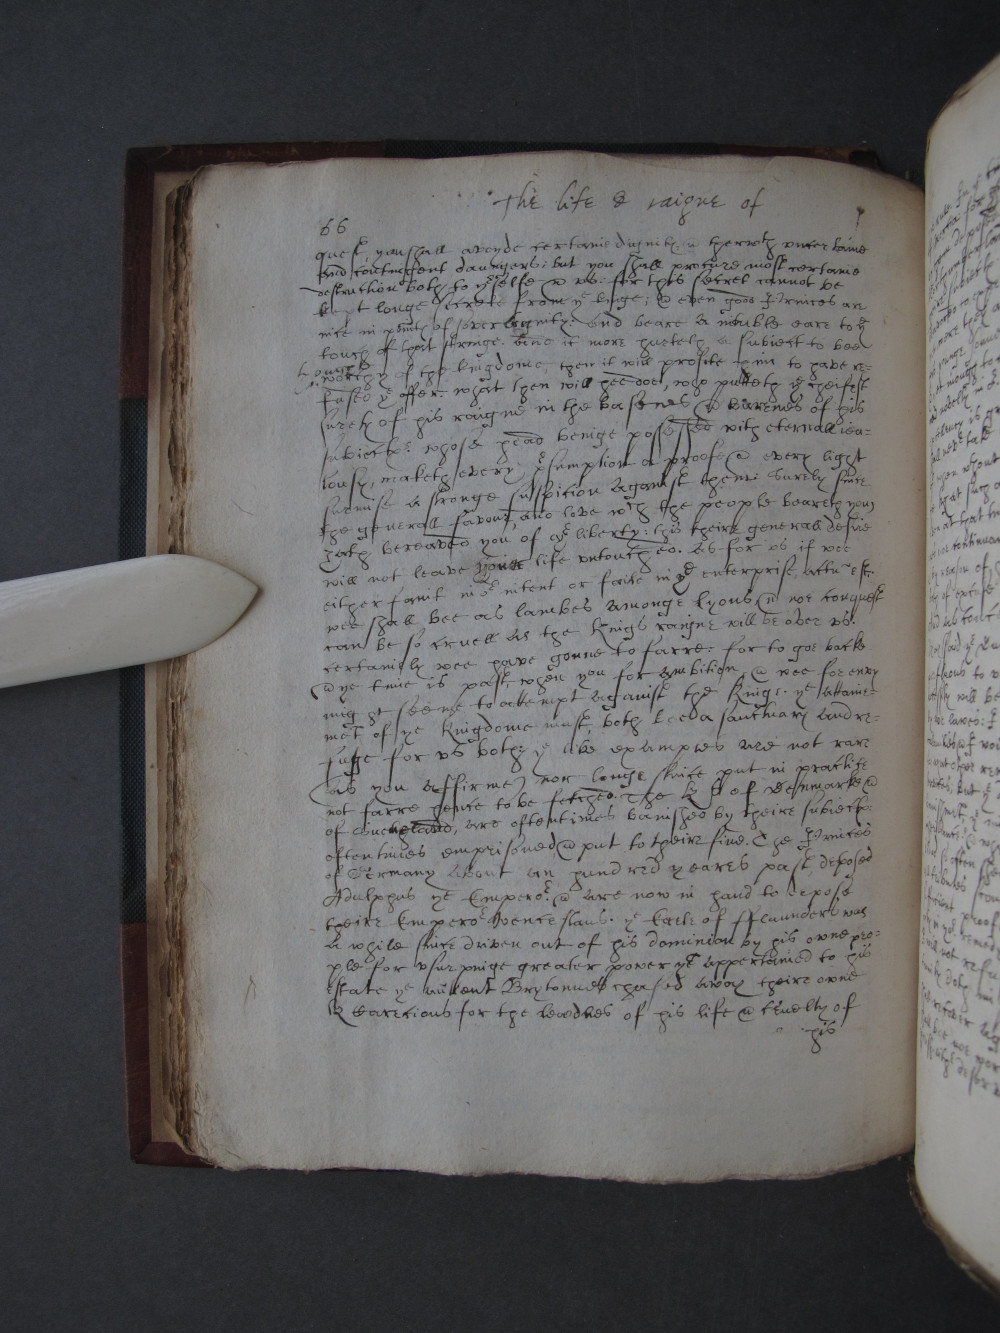 The life & raigne of
66
quest you shall avoyde certaine dignity & therwth uncertaine
and contingent daungers: but you shall procure most certaine
destruction both to yor selfe & us. for this secret cannot be
kept longe secrete from ye kinge; & even good Princes are
nice in points of soveraignity: and beare a nimble eare to ye
touch of that stringe. and it more hurteth a subiect to bee
thought worthy of the kingdome, then it will profite him to have re=
fused ye offer. what then will hee doe, who putteth ye cheifest
surety of his raigne in the basenes & barenes of his
subiects: whose head beinge possessed with eternall iea=
lousy, maketh every presumption a proofe & every light
surmise a stronge suspition against them: surely since
the generall favour, and love wch the people beareth you
hath bereaved you of yor liberty: this theire generall desire
will not leave your life untouched. As for us if wee
either faint in yor intent or faile in ye enterprise
wee shall bee as lambes amonge lyons & noe conquest
can be so cruell as the Kings raigne will be over us.
certainely wee have gonne to farre: for to goe backe
& ye time is past, when you for ambition, & wee for envy
might seeme to attempt against the Kinge. ye attaine=
ment of ye Kingdome must, both be a sanctuary and re=
fuge for us both: ye like examples are not rare
(as you affirme) nor longe since put in practise
not farre hence to be fetched. The Ks of Denmarke &
of are oftentimes banished by theire subiects
oftentimes emprisoned, & put to theire fine. The Princes
of Germany about an hundred yeares past, deposed
Adulphus ye Emperor. & are now in hand to depose
theire Emperor Wenceslaus. ye Earle of fflaunders was
a while since driven out of his dominion by his owne peo=
ple for usurpinge greater power yt appertained to his
estate ye auncient Brytonnes chased away theire owne
K Carecious for the lewdnes of his life & cruelty of
his